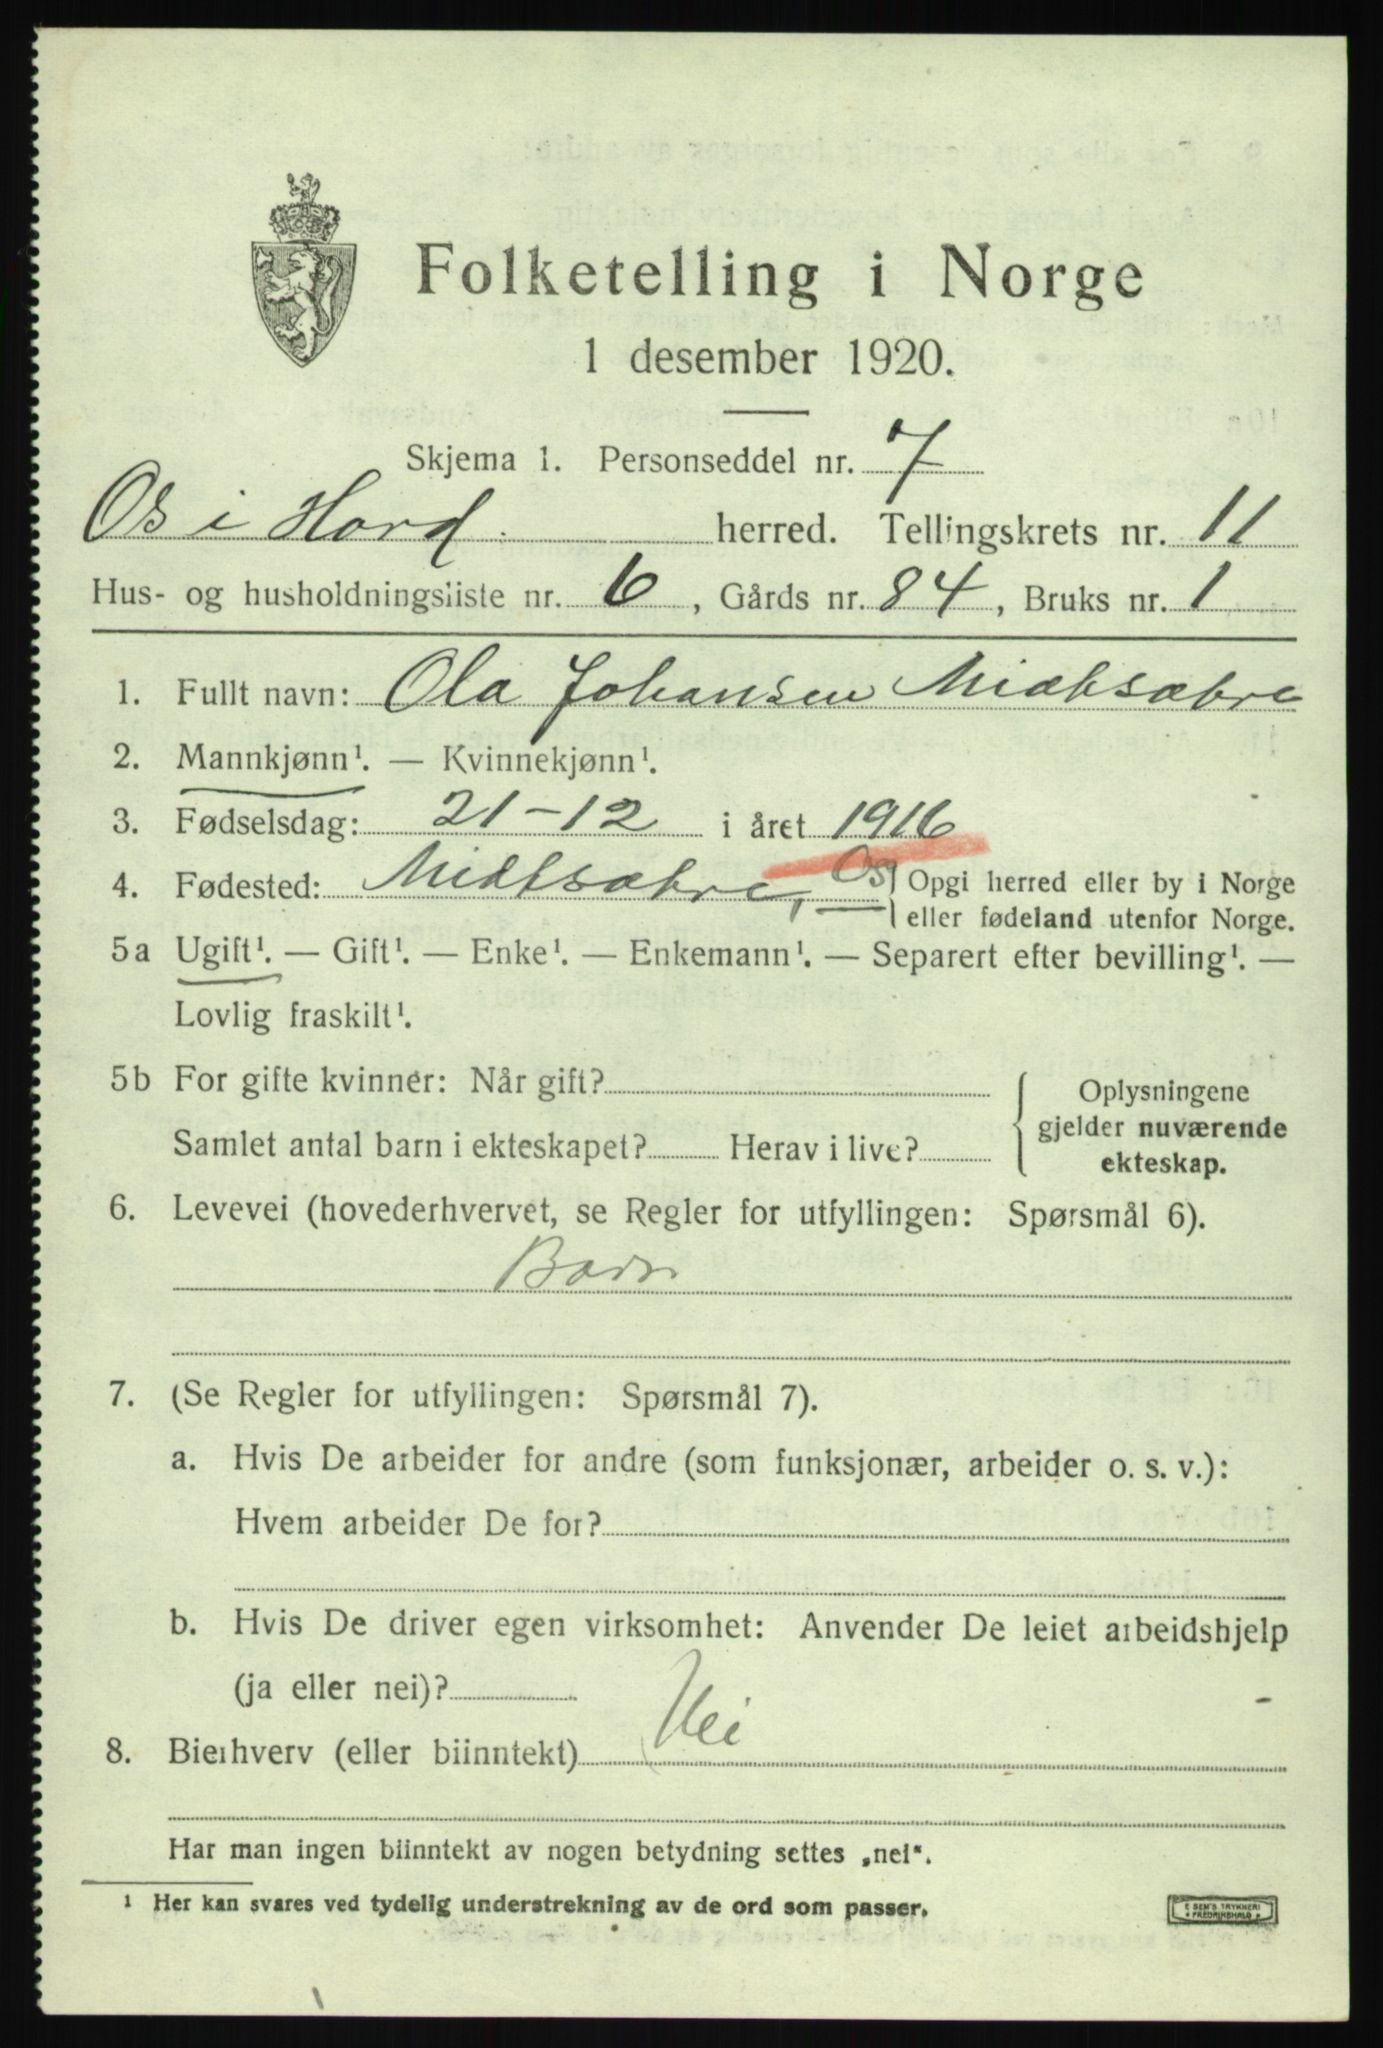 Folketelling i Norge
1 desember 1920.
Skjema 1. Personseddel nr. 7
Os i Hord. herred. Tellingskrets nr. 11
Hus- og husholdningsliste nr. 6, Gårds nr. 84, Bruks nr. 1
1. Fullt navn: Ola Johansen Midtsæbre
2. Mannkjønn¹. — Kvinnekjønn¹.
3. Fødselsdag: 21-12 i året 1916
4. Fødested: Midtsæbre, Os { Opgi herred eller by i Norge
eller fødeland utenfor Norge.
5a Ugift¹. — Gift¹. — Enke¹. — Enkemann¹. — Separert efter bevilling¹. —
Lovlig fraskilt¹.
5b For gifte kvinner: Når gift?
Samlet antal barn i ekteskapet? Herav i live?
Oplysningene
gjelder nuværende
ekteskap.
6. Levevei (hovederhvervet, se Regler for utfyllingen: Spørsmål 6).
Barn
7. (Se Regler for utfyllingen: Spørsmål 7).
a. Hvis De arbeider for andre (som funksjonær, arbeider o. s. v.):
Hvem arbeider De for?
b. Hvis De driver egen virksomhet: Anvender De leiet arbeidshjelp
(ja eller nei)?
8. Bierhverv (eller biinntekt) Nei
Har man ingen biinntekt av nogen betydning settes „nei“.
¹ Her kan svares ved tydelig understrekning av de ord som passer.
E SEM'S TRYKKERI
FREDRIKSHALD